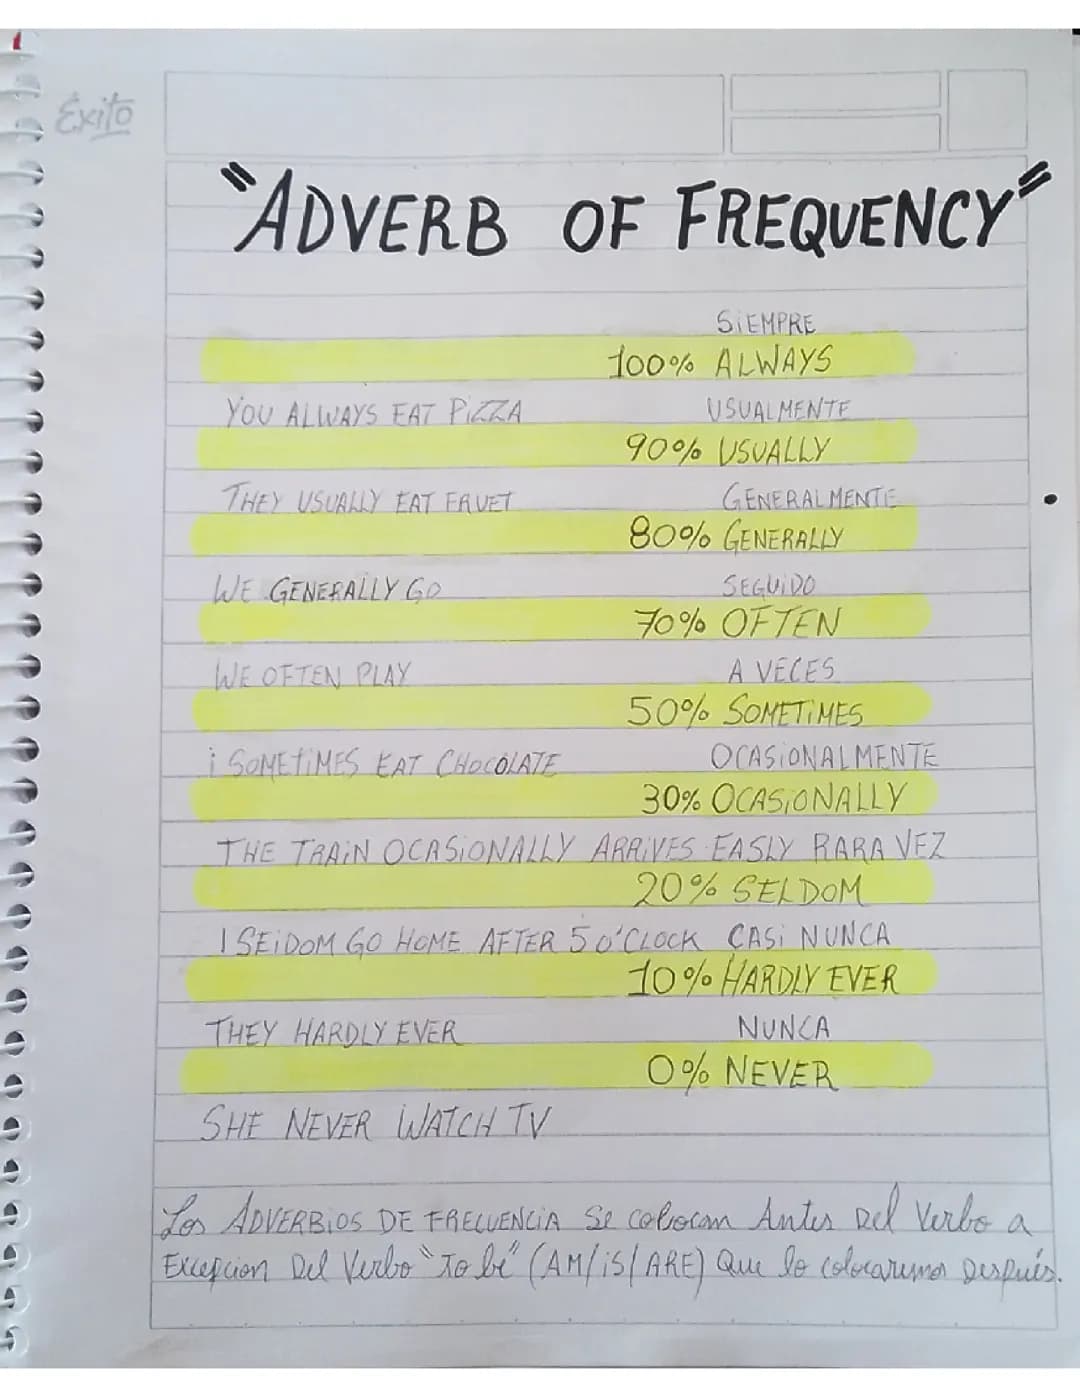 Éxito
"ADVERB OF FREQUENCY"
SIEMPRE
100% ALWAYS
YOU ALWAYS EAT PIZZA USUALMENTE
90% USUALLY
THEY USUALLY EAT FRUET GENERALMENTE
80% GENERALLY
WE GENERALLY GO SEGUIDO
70% OFTEN
WE OFTEN PLAY A VECES
50% SOMETIMES
i SOMETIMES EAT CHOCOLATE OCASIONALMENTE
30% OCASIONALLY
THE TRAIN OCASIONALLY ARRIVES EASLY RARA VEZ
20% SELDOM
I SEIDOM GO HOME AFTER 5 O'CLOCK CASI NUNCA
10% HARDLY EVER
THEY HARDLY EVER NUNCA
0% NEVER
SHE NEVER WATCH TV
Los ADVERBIOS DE FRECUENCIA Se colocan Antes Del Verbo a
Excepcion Del Verbo "To be" (AM/IS/ARE) Que lo colocaremos Después.